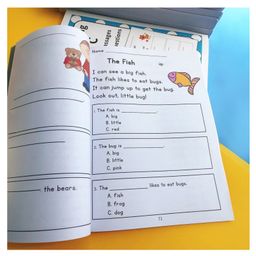 the bears.
Name
The Fish
I can see a big fish.
The fish likes to eat bugs.
It can jump up to get the bug.
Look out, little bug!
1. The fish is
A. big
B. little
C. red
2. The bug is
A. big
B. little
C. pink
3. The likes to eat bugs.
A. fish
B. frog
C. dog
71